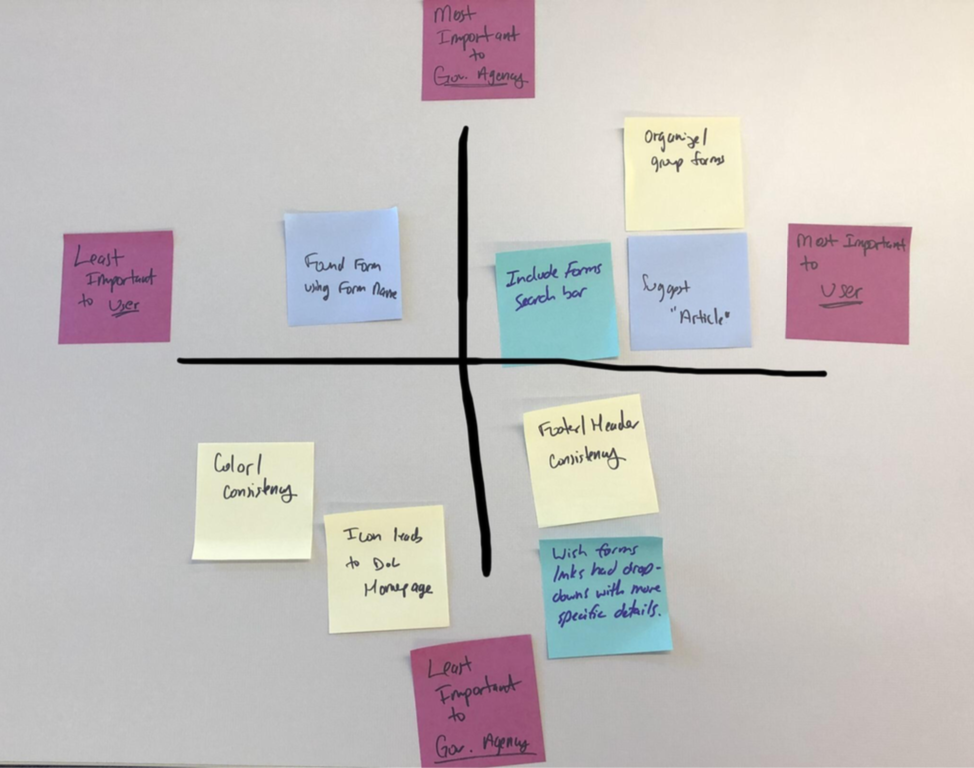 Most
Important
to
Gov. Agency
Organize/
group forms
Least
Important
to User
Found Form
using Form Name
Include Forms
Search bar
Suggest
"Article"
Most Important
to
User
Footer/Header
Consistency
Color/
Consistency
Icon leads
to DoL
Homepage
Wish forms
links had drop-
downs with more
specific details.
Least
Important
to
Gov. Agency